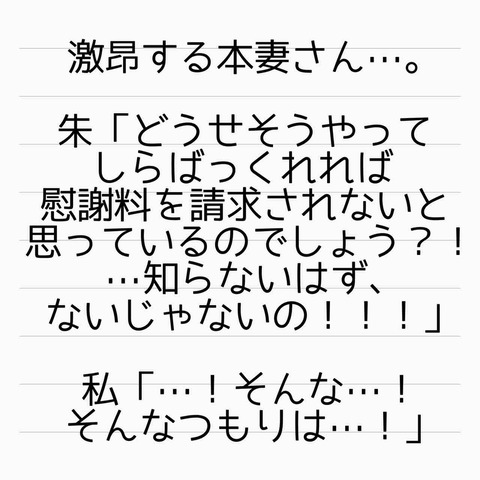 激昂する本妻さん…。
朱「どうせそうやって
しらばっくれれば
慰謝料を請求されないと
思っているのでしょう？！
…知らないはず、
ないじゃないの！！！」
私「…！そんな…！
そんなつもりは…！」